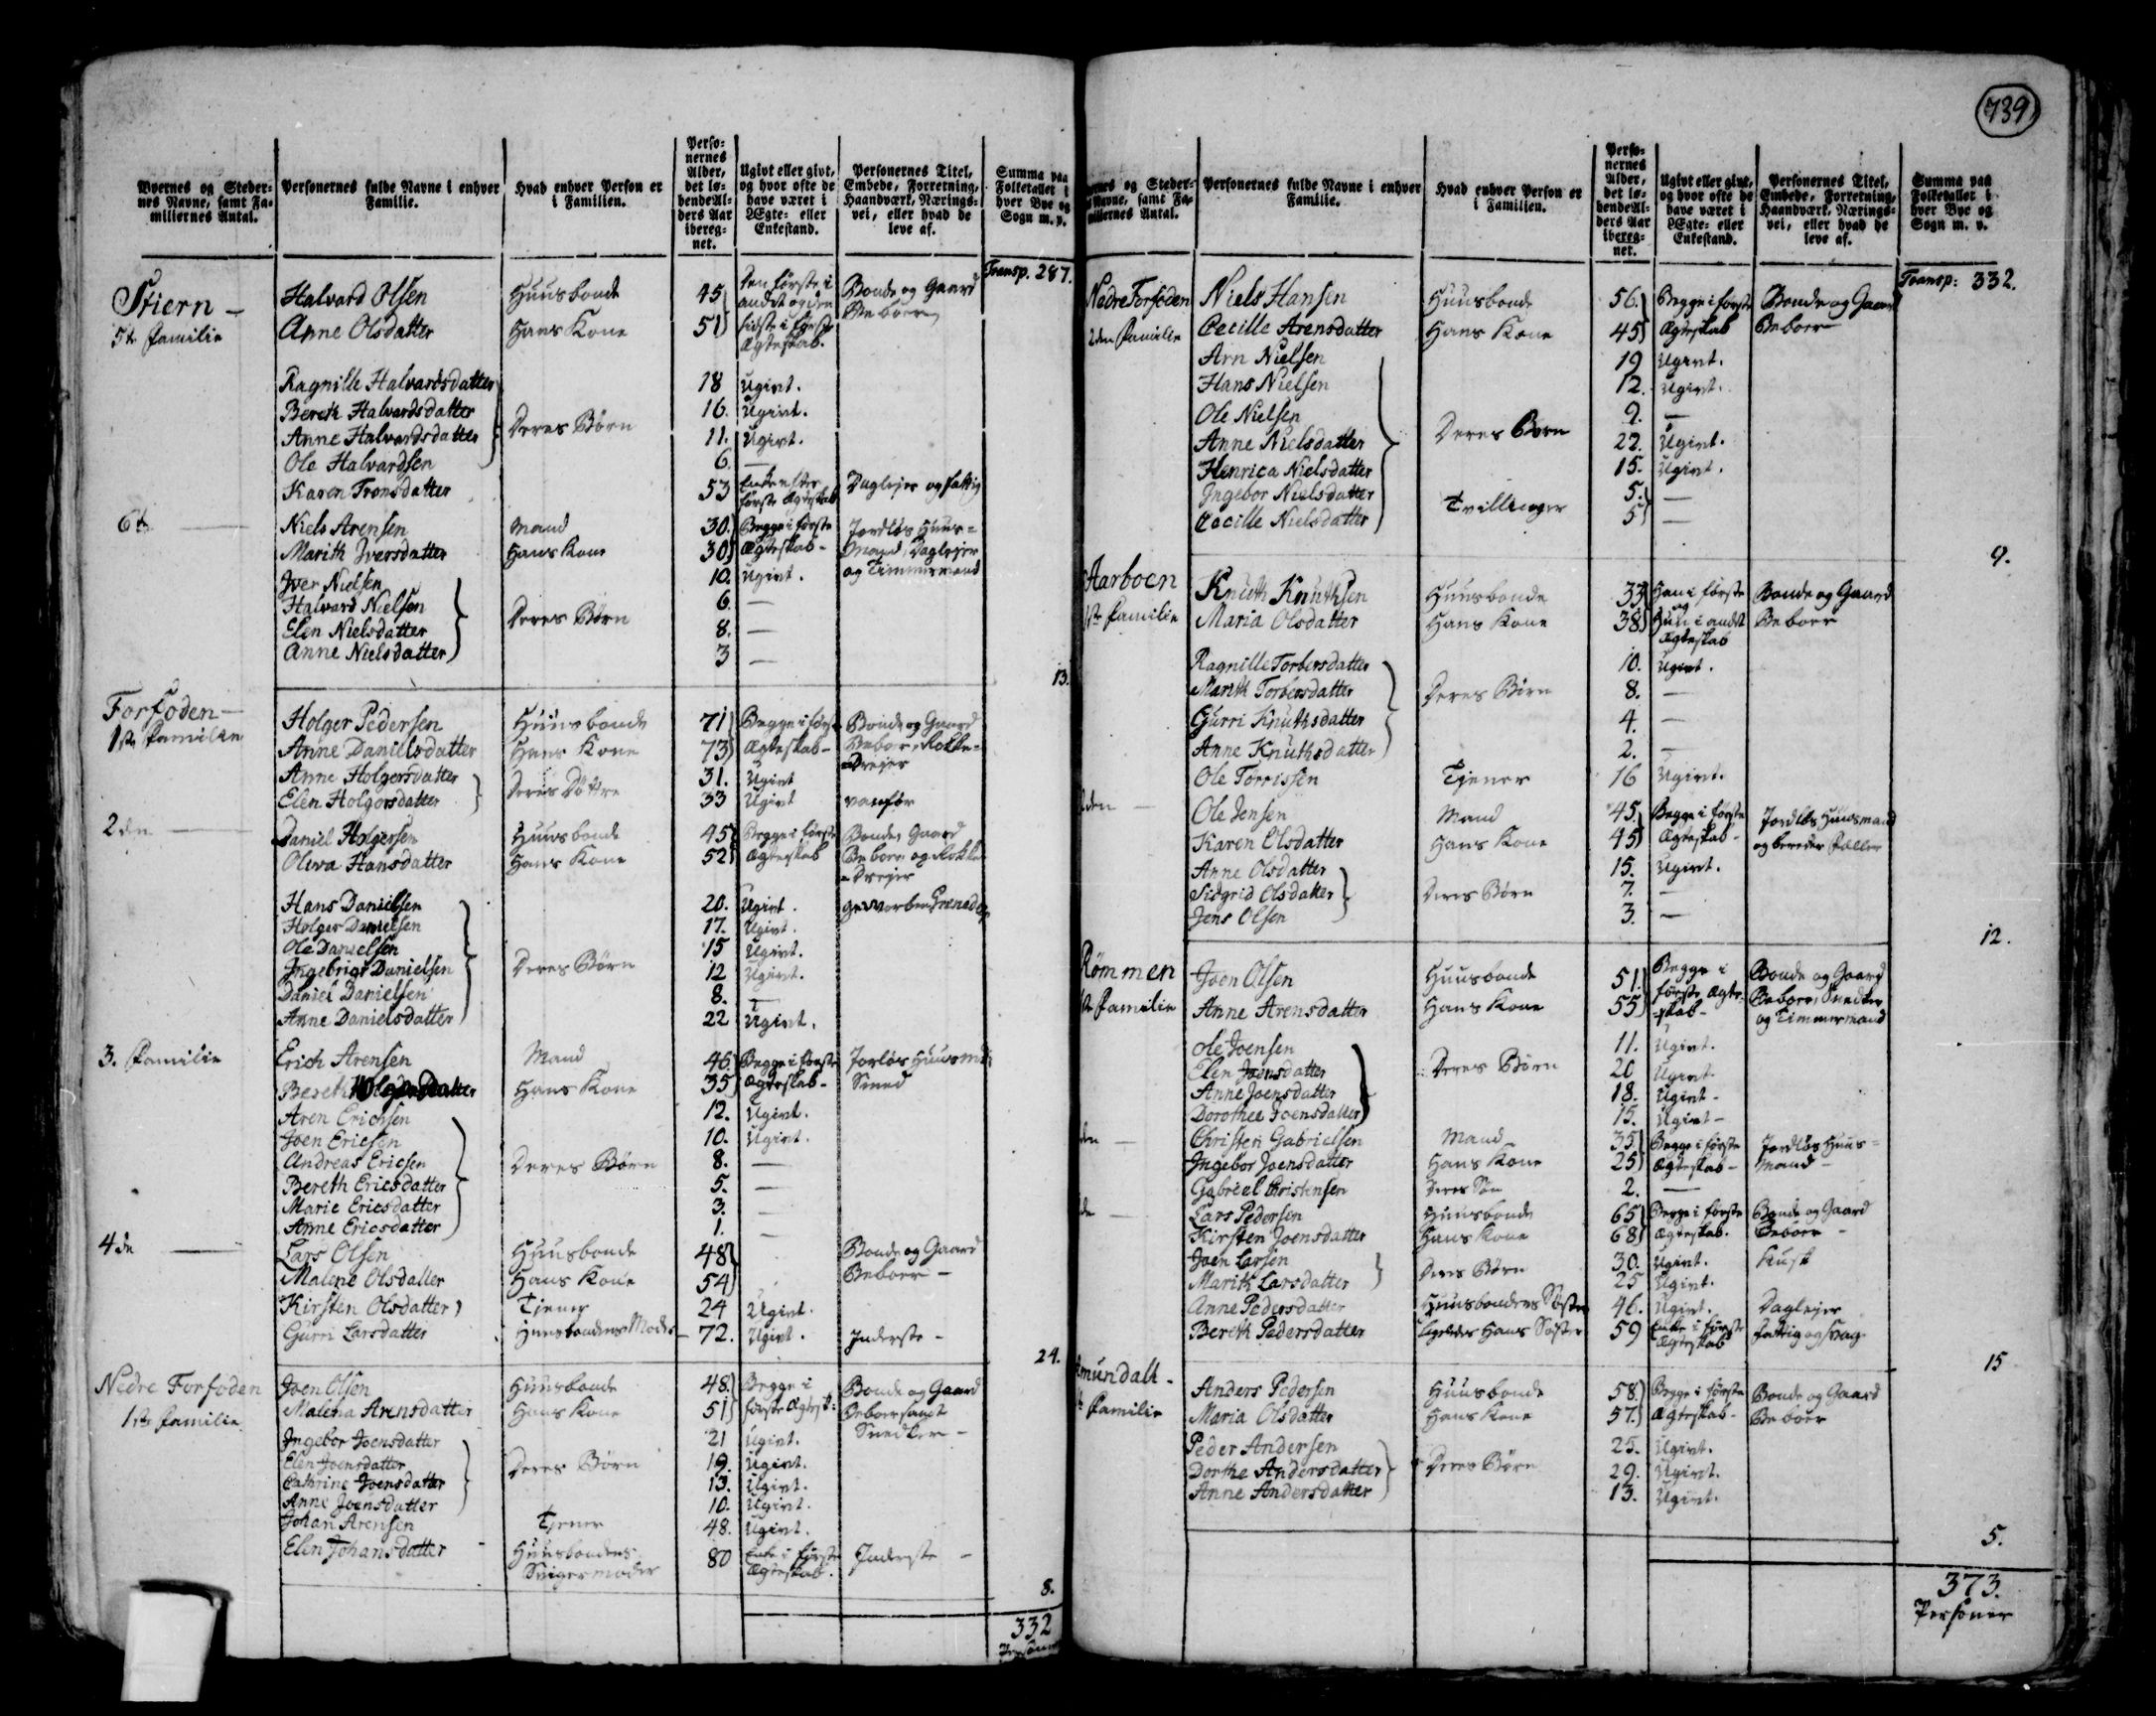 Byernes og Steder-
nes Navne, samt Fa-
miliernes Antal.
Personernes fulde Navne i enhver
Familie.
Hvad enhver Person er
i Familien.
Perso-
nernes
Alder,
det lø-
bende Al-
ders Aar
ibereg-
net.
Ugivt eller givt,
og hvor ofte de
have været i
Ægte- eller
Enkestand.
Personernes Titel,
Embede, Forretning,
Haandværk, Nærings-
vei, eller hvad de
leve af.
Summa paa
Folketallet i
hver Bye og
Sogn m. v.
Transp. 287.
Stiern - 5te Familie
Halvord Olsen Huusbonde 45 den første i andet og den Bonde og Gaard
Anne Olsdatter Hans Kone 51 sidste i første Ægteskab. Beboer
Ragnille Halvardsdatter 18 Ugivt.
Bereth Halvardsdatter Deres Børn 16. Ugivt.
Anne Halvardsdatter 11. Ugivt.
Ole Halvardsen 6. —
Karen Tronsdatter 53 første Ægteskab Daglejer og fattig
6te — Niels Arensen Mand 30. Begge i første Jordløs Huus-
Marith Iversdatter Hans Kone 30 Ægteskab- Mand, Daglejer
Iver Nielsen 10. Ugivt. og Timmermand
Halvard Nielsen Deres Børn 6. —
Elen Nielsdatter 8. —
Anne Nielsdatter 3 —
13.
Forfoden -
1ste Familie
Holger Pedersen Huusbonde 71 Begge i første Bonde og Gaard
Anne Danielsdatter Hans Kone 73 Ægteskab- Beboer, Rokke-
Anne Holgersdatter Deres Døttre 31. Ugivt Drejer
Elen Holgorsdatter 33 Ugivt vanfør
2den — Daniel Holgersen Huusbonde 45 Begge i første Bonde, Gaard
Oliva Hansdatter Hans Kone 52 Ægteskab Beboer og Rokke
-Drejer
Hans Danielsen 20. Ugivt. gevorben Grenader
Holger Danielsen 17. Ugivt.
Ole Danielsen 15 Ugivt.
Ingebrigt Danielsen Deres Børn 12 Ugivt.
Daniel Danielsen 8. —
Anne Danielsdatter 22 Ugivt.
3. Familie Erich Arensen Mand 46. Begge i første Jorløs Huusmd
Bereth Hans Kone 35 Ægteskab- Smed
Aren Erichsen 12. Ugivt.
Joen Ericsen 10. Ugivt.
Andreas Ericsen Deres Børn 8. —
Bereth Ericsdatter 5. —
Marie Ericsdatter 3. —
Anne Ericsdatter 1. —
4de — Lars Olsen Huusbonde 48 Bonde og Gaard
Malene Olsdatter Hans Kone 54 Beboer -
Kirsten Olsdatter Tjener 24 Ugivt.
Gurri Larsdatter Huusbondens Moder 72. Ugivt. Inderste -
24.
Nedre Forfoden
1ste Familie
Joen Olsen Huusbonde 48. Begge i Bonde og Gaard
Malena Arensdatter Hans Kone 51 første Ægtesk: Beboer samt
Ingebor Joensdatter 21 Ugivt. Snedker -
Elen Joensdatter Deres Børn 19. Ugivt.
Cathrine Joensdatter 13. Ugivt.
Anne Joensdatter 10. Ugivt.
Johan Arensen Tjener 48. Ugivt.
Elen Johansdatter - Huusbondens 80 Enke i første Inderste -
Svigermoder Ægteskab.
8.
332
Personer
739
Byernes og Steder-
nes Navne, samt Fa-
miliernes Antal.
Personernes fulde Navne i enhver
Familie.
Hvad enhver Person er
i Familien.
Perso-
nernes
Alder,
det lø-
bende Al-
ders Aar
ibereg-
net.
Ugivt eller givt,
og hvor ofte de
have været i
Ægte- eller
Enkestand.
Personernes Titel,
Embede, Forretning,
Haandværk, Nærings-
vei, eller hvad de
leve af.
Summa paa
Folketallet i
hver Bye og
Sogn m. v.
Transp: 332.
Nedre Forfoden
2den Familie
Niels Hansen Huusbonde 56. Begge i første Bonde og Gaard
Cecille Arensdatter Hans Kone 45 Ægteskab Beboer
Arn Nielsen 19 Ugivt.
Hans Nielsen 12. Ugivt.
Ole Nielsen 9. —
Anne Nielsdatter Deres Børn 22. Ugivt.
Henrica Nielsdatter 15. Ugivt.
Ingebor Nielsdatter Tvillinger 5. —
Cecille Nielsdatter 5 —
9.
Aarboen
1ste Familie
Knuth Knuthsen Huusbonde 33 Han i første Bonde og Gaard
Maria Olsdatter Hans Kone 38 og Hun i andet Beboer
Ægteskab
Ragnille Torbersdatter 10. Ugivt.
Marith Torbersdatter Deres Børn 8. —
Gurri Knuthsdatter 4. —
Anne Knuthsdatter 2. —
Ole Torrissen Tjener 16 Ugivt.
2den — Ole Jensen Mand 45. Begge i første Jordløs Huusmand
Karen Olsdatter Hans Kone 45 Ægteskab- og bereder Fæller
Anne Olsdatter 15. Ugivt.
Sidgrid Olsdatter Deres Børn 7. —
Jens Olsen 3. —
12.
Rømmen
1ste Familie
Joen Olsen Huusbonde 51. Begge i Bonde og Gaard
Anne Arensdatter Hans Kone 55 første Ægte- Beboer, Snedker
-skab- og Timmermand
Ole Joensen 11. Ugivt.
Elen Joensdatter Deres Børn 20 Ugivt.
Anne Joensdatter 18. Ugivt-
Dorothea Joensdatter 15. Ugivt-
den — Christen Gabrielsen Mand 35 Begge i første Jordløs Huus-
Ingebor Joensdatter Hans Kone 25 Ægteskab- Mand-
Gabriel Christensen Deres Søn 2. —
de — Lars Pedersen Huusbonde 65 Begge i første Bonde og Gaard
Kirsten Joensdatter Hans Kone 68 Ægteskab. Beboer -
Joen Larsen Deres Børn 30. Ugivt.
Marith Larsdatter 25 Ugivt.
Anne Pedersdatter Huusbondens Søster 46. Ugivt. Daglejer
Bereth Pedersdatter ligeledes Hans Søster 59 Enke i første Fattig og svag
Ægteskab
15
mundalt -
Familie
Anders Pedersen Huusbonde 58. Begge i første Bonde og Gaard
Maria Olsdatter Hans Kone 57. Ægteskab- Beboer
Peder Andersen 25. Ugivt.
Dorthe Andersdatter Deres Børn 29. Ugivt.
Anne Andersdatter 13. Ugivt.
5.
373.
Personer